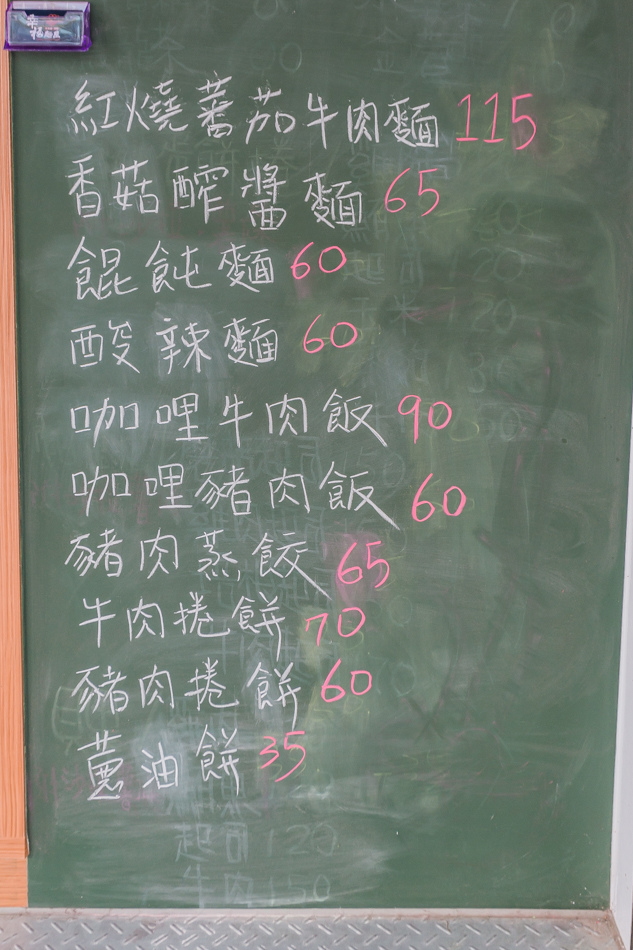 紅燒蕃茄牛肉麵 115
香菇醡醬麵 65
餛飩麵 60
酸辣麵 60
咖哩牛肉飯 90
咖哩豬肉飯 60
豬肉蒸餃 65
牛肉捲餅 70
豬肉捲餅 60
蔥油餅 35
起司 120
牛肉 150